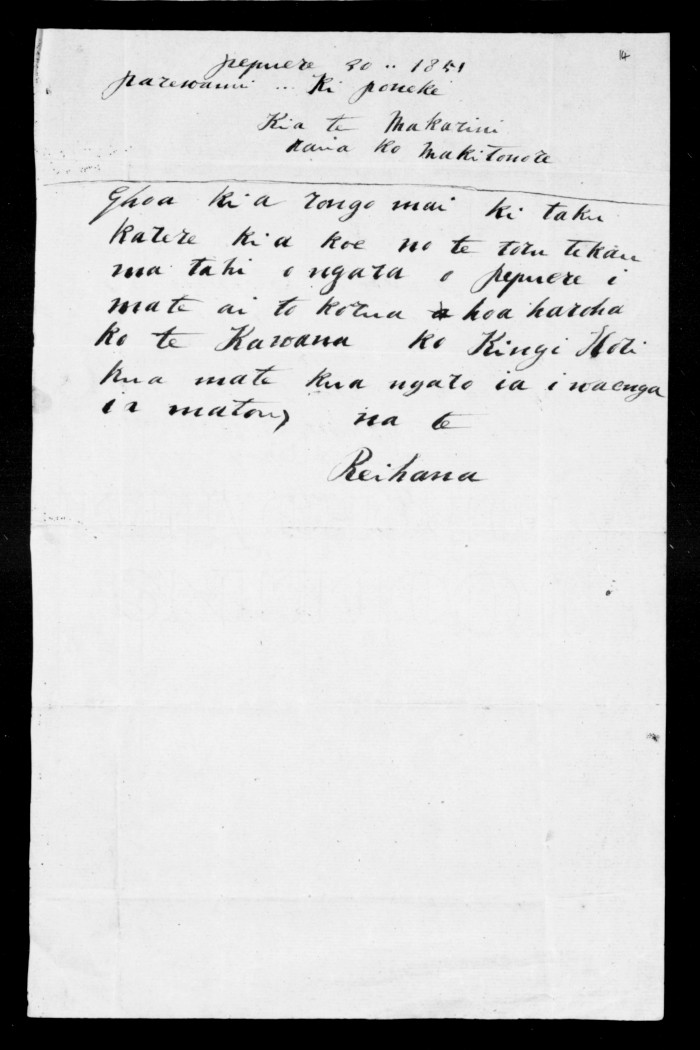 14
pepuere 30 .. 1851
parewanui ... Ki poneke
Kia te Makarini
raua ko Makitonore
Ehoa kia rongo mai ki taku
karere kia koe no te toru tekau
ma tahi o ngara o pepuere i
mate ai to korua hoa haroha
ko te Kawana ko Kingi Hori
kua mate kua ngaro ia i waenga
i a matou na te
Reihana